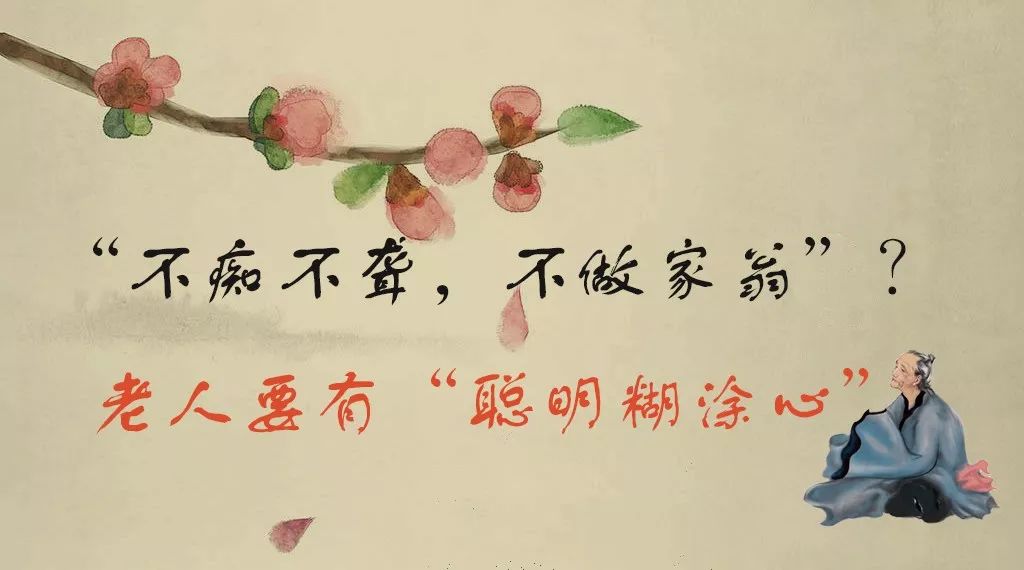 “不痴不聋，不做家翁”？
老人要有“聪明糊涂心”